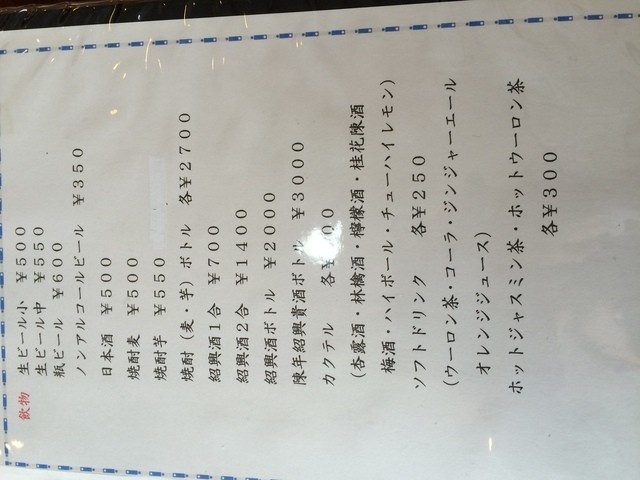 飲物
生ビール小 ¥500
生ビール中 ¥550
瓶ビール ¥600
ノンアルコールビール ¥350
日本酒 ¥500
焼酎麦 ¥500
焼酎芋 ¥550
焼酎(麦・芋)ボトル 各¥2700
紹興酒1合 ¥700
紹興酒2合 ¥1400
紹興酒ボトル ¥2000
陳年紹興貴酒ボトル ¥3000
カクテル 各
(杏露酒・林檎酒・檸檬酒・桂花陳酒
梅酒・ハイボール・チューハイレモン)
ソフトドリンク 各¥250
(ウーロン茶・コーラ・ジンジャーエール
オレンジジュース)
ホットジャスミン茶・ホットウーロン茶
各¥300